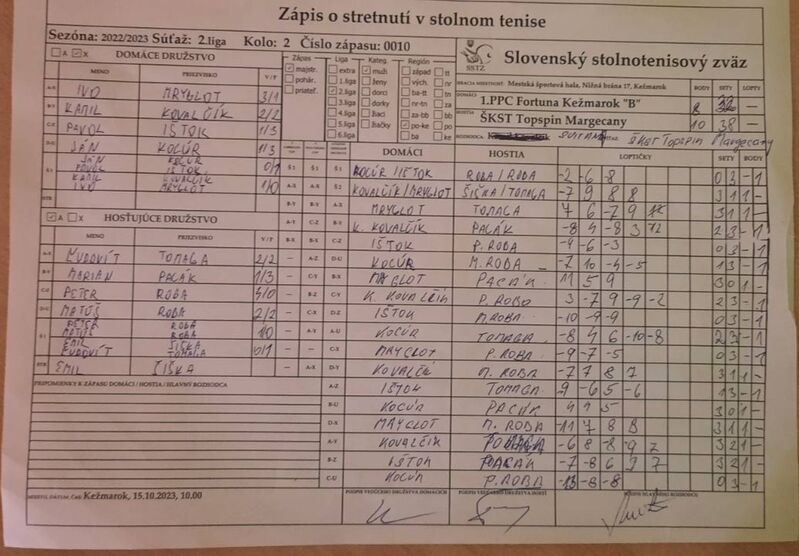 Zápis o stretnutí v stolnom tenise
Sezóna: 2022/2023 Súťaž: 2.liga Kolo: 2 Číslo zápasu: 0010
A X DOMÁCE DRUŽSTVO
MENO PRIEZVISKO V/P
IVO MRYGLOT 3/1
KAMIL KOVALČÍK 2/2
PAVOL IŠTOK 1/3
JÁN KOCÚR 1/3
JÁN KOCÚR
PAVOL IŠTOK 0/1
KAMIL KOVALČÍK
IVO MRYGLOT 1/0
A X HOSŤUJÚCE DRUŽSTVO
MENO PRIEZVISKO V/P
ĽUDOVÍT TOMAGA 2/2
MARIÁN PACÁK 1/3
PETER RODA 4/0
MATÚŠ RODA 2/2
PETER RODA
MATÚŠ RODA 1/0
EMIL ŠIŠKA
ĽUDOVÍT TOMAGA 0/1
EMIL ŠIŠKA
PRIPOMIENKY K ZÁPASU DOMÁCI / HOSTIA / HLAVNÝ ROZHODCA
MIESTO, DÁTUM, ČAS: Kežmarok, 15.10.2023, 10.00
Zápas
majstr.
pohár.
priateľ.
Liga
extra
1.liga
2.liga
3.liga
4.liga
5.liga
6.liga
Kateg.
muži
ženy
dorci
dorky
žiaci
žiačky
Región
západ tt
vých. nr
ba-tt tn
nr-tn za
za-bb bb
po-ke po
ke
SSTZ
Slovenský stolnotenisový zväz
HRACIA MIESTNOSŤ: Mestská športová hala, Nižná brána 17, Kežmarok
DOMÁCI
1.PPC Fortuna Kežmarok "B"
BODY 8
SETY
HOSTIA
ŠKST Topspin Margecany
10 38
ROZHODCA
ŠKST Topspin Margecany
DOMÁCI HOSTIA LOPTIČKY SETY BODY
Š1 Š1 Š1 KOCÚR / IŠTOK RODA / RODA -2 -6 -8 0 3 - 1
A-X A-X Š2 KOVALČÍK / MRYGLOT ŠIŠKA / TOMAGA -7 9 8 8 3 1 1 -
B-Y B-Y A-X MRYGLOT TOMAGA 7 6 -7 9 3 1 1 -
A-Y C-Z B-Y K. KOVALČÍK PACÁK -8 4 -8 3 2 3 - 1
B-X A-X C-Z IŠTOK P. RODA -4 -6 -3 0 3 - 1
— A-Z D-U KOCÚR M. RODA -7 10 -4 -5 1 3 - 1
— C-Y B-X MRYGLOT PACÁK 11 5 9 3 0 1 -
— B-Z C-Y K. KOVALČÍK P. RODA 3 -7 9 -9 -2 2 3 - 1
— C-X D-Z IŠTOK M. RODA -10 -9 -9 0 3 - 1
— A-Y A-U KOCÚR TOMAGA -8 4 6 -10 -8 2 3 - 1
— — C-X MRYGLOT P. RODA -9 -7 -5 0 3 - 1
— A-X D-Y KOVALČÍK M. RODA -7 7 8 7 3 1 1 -
A-Z IŠTOK TOMAGA 9 -6 5 -6 1 3 - 1
B-U KOCÚR PACÁK 4 1 5 3 0 1 -
D-X MRYGLOT M. RODA -11 7 8 8 3 1 1 -
A-Y KOVALČÍK TOMAGA -6 8 -8 9 7 3 2 1 -
B-Z IŠTOK PACÁK -7 -8 6 9 7 3 2 1 -
C-U KOCÚR P. RODA -13 -8 -8 0 3 - 1
PODPIS VEDÚCEHO DRUŽSTVA DOMÁCICH PODPIS VEDÚCEHO DRUŽSTVA HOSTÍ PODPIS HLAVNÉHO ROZHODCU